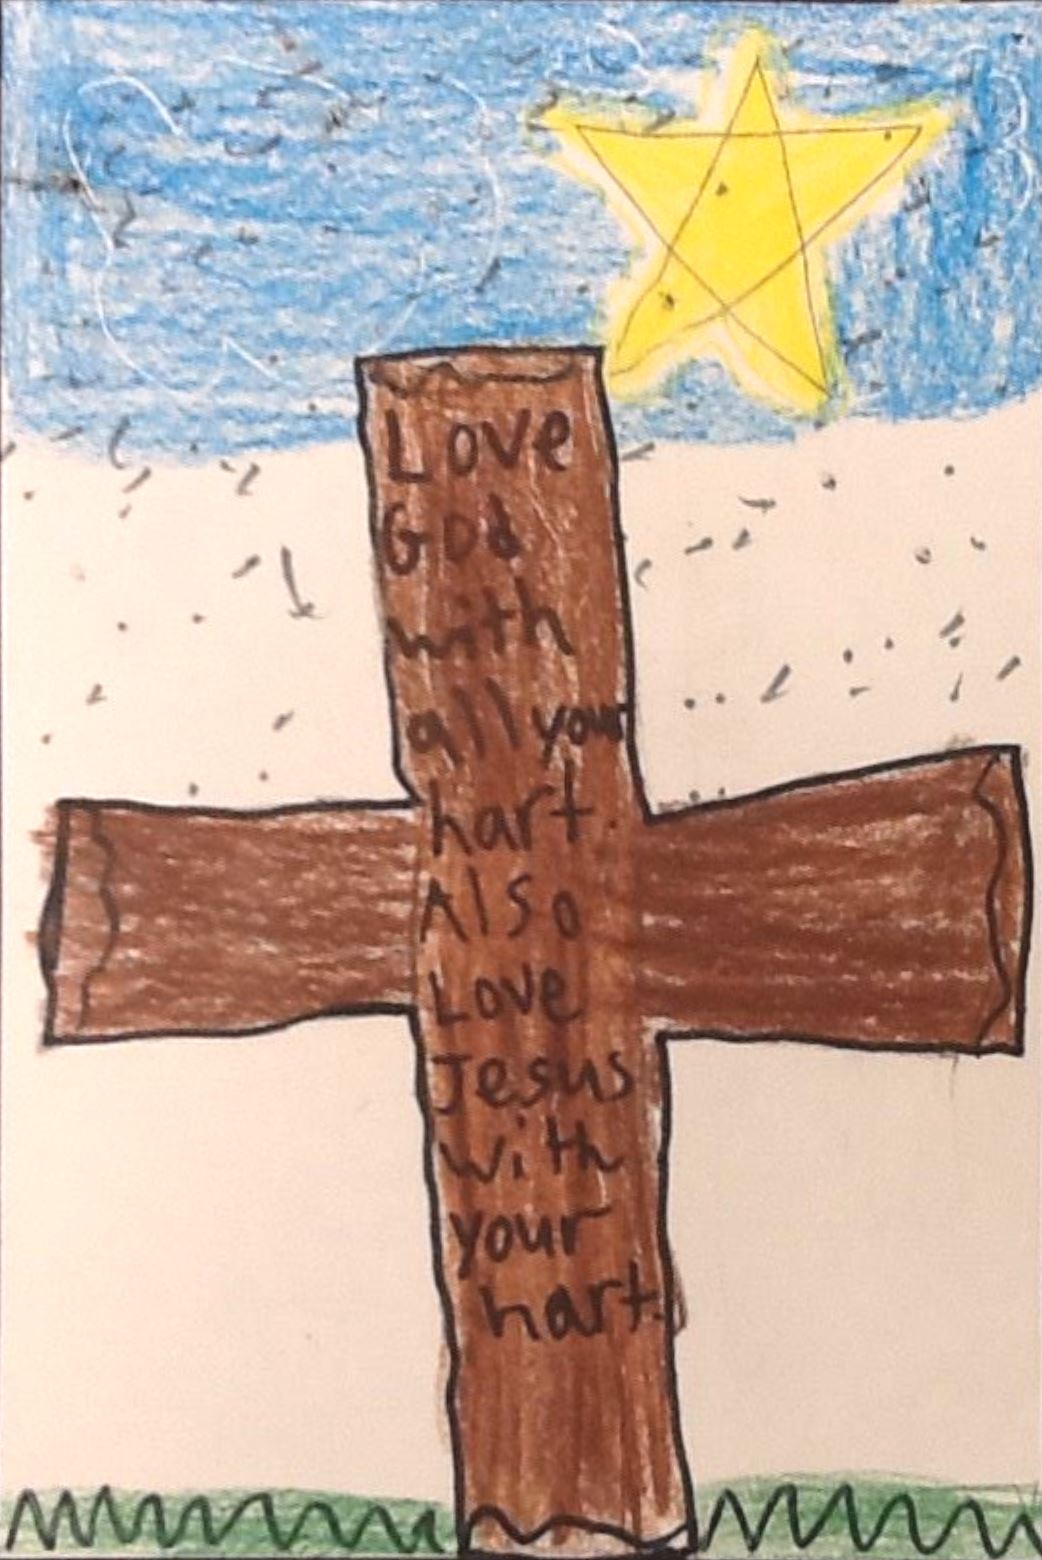 Love
God
with
all your
hart.
Also
Love
Jesus
with
your
hart.